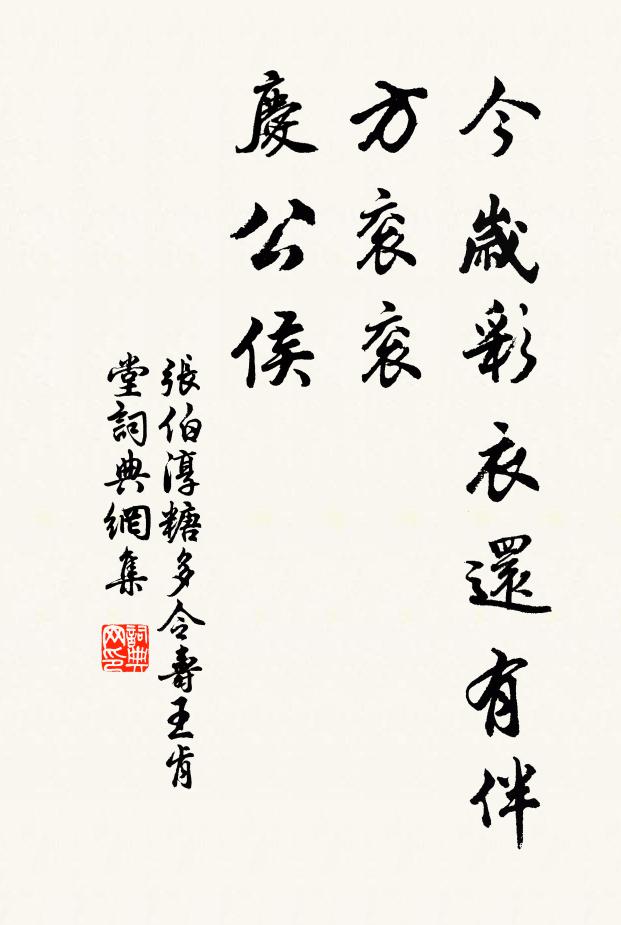 今歲彩衣還有伴
方袞袞
慶公侯
張伯淳糖多令壽王肯
堂詞典網集
詞典
网印